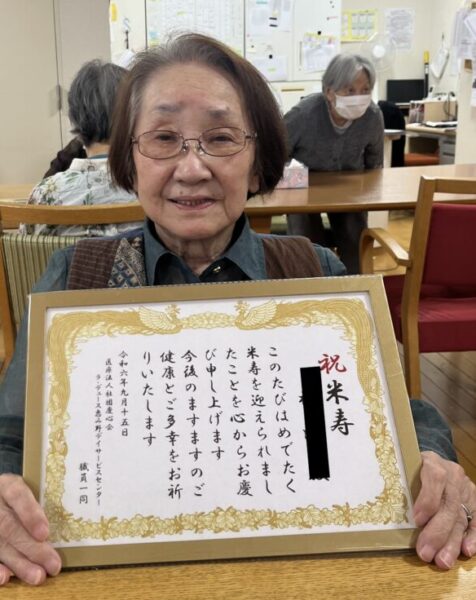 祝米寿
このたびはめでたく
米寿を迎えられまし
たことを心からお慶
び申し上げます
今後のますますのご
健康とご多幸をお祈
りいたします
令和六年九月十五日
医療法人社団慶心会
ラ・デュース恵み野デイサービスセンター
職員一同